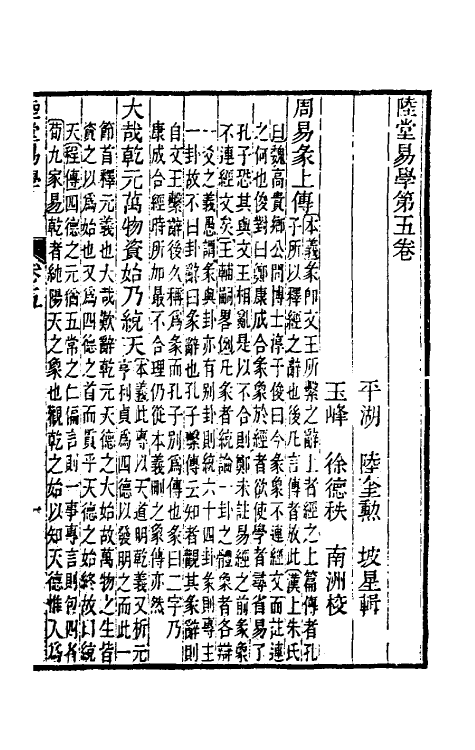 陸堂易學第五卷
平湖　陸奎勲　坡星輯
玉峰　徐德秩　南洲校
周易彖上傳本義彖即文王所繫之辭上者經之上篇傳者孔
子所以釋經之辭也後凡言傳者放此漢上朱氏
曰魏高貴鄉公問博士淳于俊曰今彖象不連經文而註連
之何也俊對曰鄭康成合彖象於經者欲使學者尋省易了
孔子恐其與文王相亂是以不合則鄭未註易經之前彖象
不連經文矣王輔嗣畧例凡彖者統論一卦之體象者各辯
一爻之義愚謂彖與卦亦有别卦則統六十四卦彖則專主
一卦故不曰卦辭曰彖辭也孔子繫傳云知者觀其彖辭則
自文王繫辭後久稱爲彖而孔子别爲傳也彖曰二字乃
康成合經時所加最不合理仍從本義刪之象傳亦然
大哉乾元萬物資始乃統天本義此專以天道明乾義又析元
亨利貞爲四德以發明之而此一
節首釋元義也大哉歎辭乾元天德之大始故萬物之生皆
資之以爲始也又爲四德之首而貫乎天德之始終故曰統
天程傳四德之元猶五常之仁偏言則一事專言則包四者
荀九家易乾者純陽天之象也觀乾之始以知天德惟人爲
陸堂易學
卷五
一